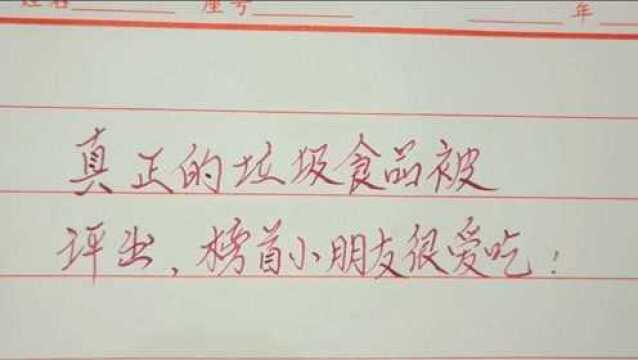 姓名 座号 年
真正的垃圾食品被
评出，榜首小朋友很爱吃！